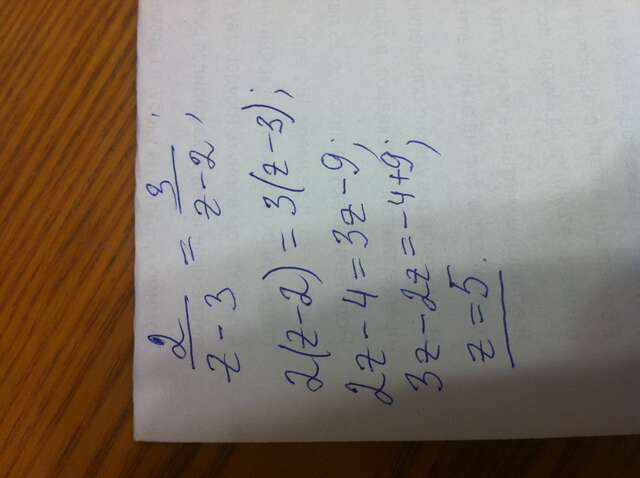 2/(z-3) = 3/(z-2);
2(z-2) = 3(z-3);
2z-4=3z-9;
3z-2z=-4+9;
z=5.